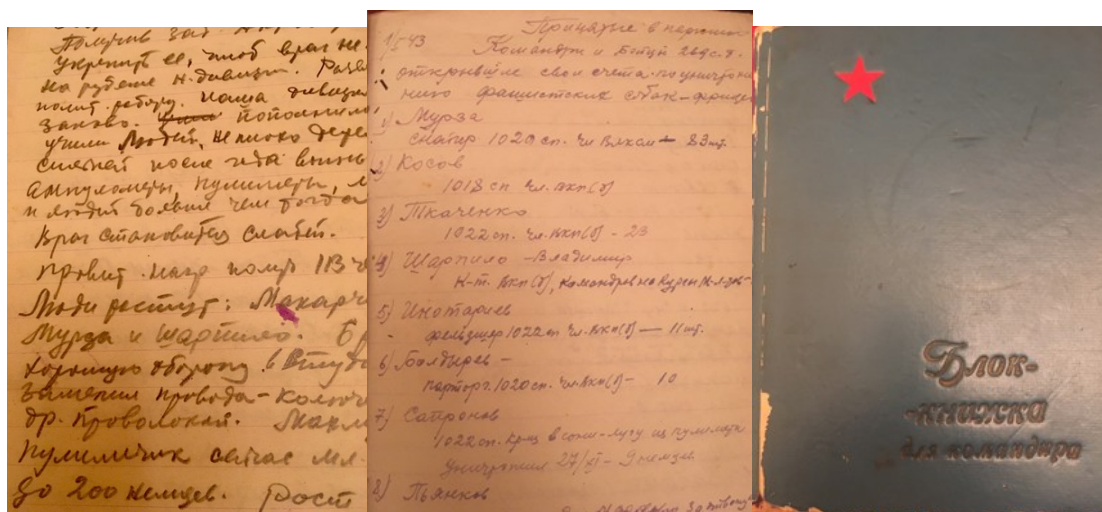 Получив зад
укрепить ее, чтоб враг не
на рубеже н-дивизии. Разв
полит. работу. Наша дивизи
заново. пополнили
учили людей, не плохо
сильней после года войны
ампуломёты, пулемёты, м
и людей больше чем тогда
Враг становится слабей.
Правит. нагр. получ 113 че
Люди растут: Макарч
Мурза и Шарпило. Б
хорошую оборону. в
заменили провода - колюч
др. проволокой. Макс
Пулеметчик сейчас
до 200 немцев. Рост
1/I-43 Принятые в партию
Командиры и бойцы 269 с.д.
открывшие свои счета по уничтоже
нию фашистских собак-фрицев
1) Мурза
снайпер 1020 сп. чл ВЛКСМ - 83 шт.
2) Косов
1018 сп чл. ВКП(б)
3) Ткаченко
1022 сп. чл. ВКП(б) - 23
4) Шарпило - Владимир
К-т. ВКП(б), Командиров на курсы
5) Инотариев
фельдшер 1022 сп чл. ВКП(б) — 11 шт.
6) Болдырев -
парторг. 1020 сп. чл. ВКП(б) - 10
7) Сапронов
1022 сп. из пулемета
уничтожил 27/XI - 9 немцев
8) Пьянков
Блок-
-книжка
для командира